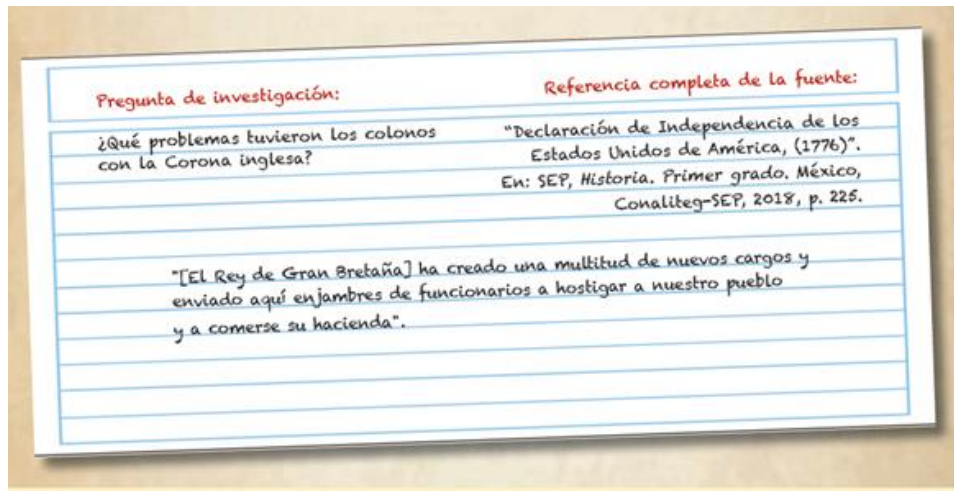 Pregunta de investigación:
Referencia completa de la fuente:
¿Qué problemas tuvieron los colonos
con la Corona inglesa?
"Declaración de Independencia de los
Estados Unidos de América, (1776)".
En: SEP, Historia. Primer grado. México,
Conaliteg-SEP, 2018, p. 225.
"[El Rey de Gran Bretaña] ha creado una multitud de nuevos cargos y
enviado aquí enjambres de funcionarios a hostigar a nuestro pueblo
y a comerse su hacienda".